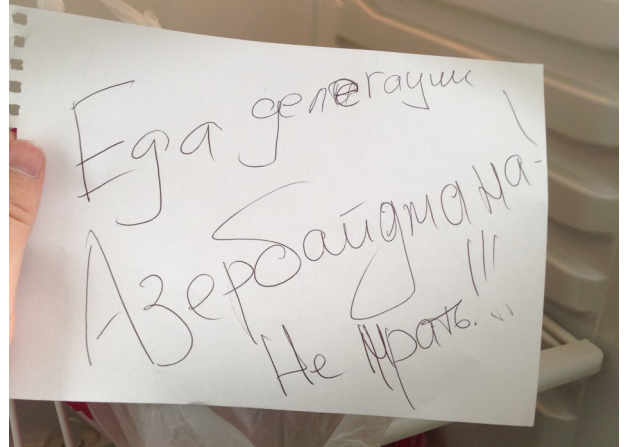 Еда делегации
Азербайджана!
Не жрать!!!